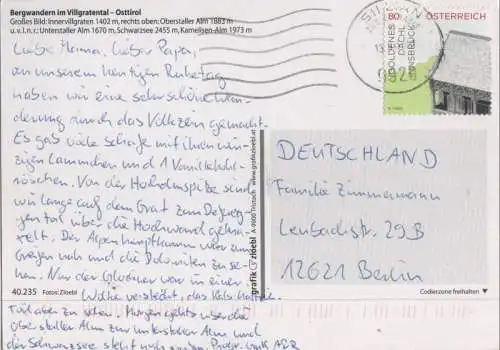 Bergwandern im Villgratental – Osttirol
Großes Bild: Innervillgraten 1402 m, rechts oben: Oberstaller Alm 1883 m
u.v.l.n.r.: Unterstaller Alm 1670 m, Schwarzsee 2455 m, Kamelisen-Alm 1973 m
Liebe Mama, Lieber Papa,
an unserem heutigen Ruhetag
haben wir eine sehr schöne Wan-
derung durch das gemacht.
Es gab viele Schafe mit ihren win-
zigen Lämmchen und 1
röschen. Von der sind
wir lange auf dem Grat zum Defereg-
gental über die Hochwand gekra-
xelt. Der Alpenhauptkamm war zum
Greifen nah und die Dolomiten zu se-
hen. Nur der Glockner war in einer
Wolke versteckt, das Kals
Törl aber zu sehen. Morgen gehts über die
Oberstaller Alm zur Unterstaller Alm und
der Schwarzsee steht auch
80 ÖSTERREICH
GOLDENES
DACHL
INNSBRUCK
SILLIAN
9920
DEUTSCHLAND
Familie Zimmermann
Lenbachstr. 29B
12621 Berlin
grafik zloebl A-9900 Tristach www.grafikzloebl.at
40.235 Fotos: Zloebl
Codierzone freihalten ▼